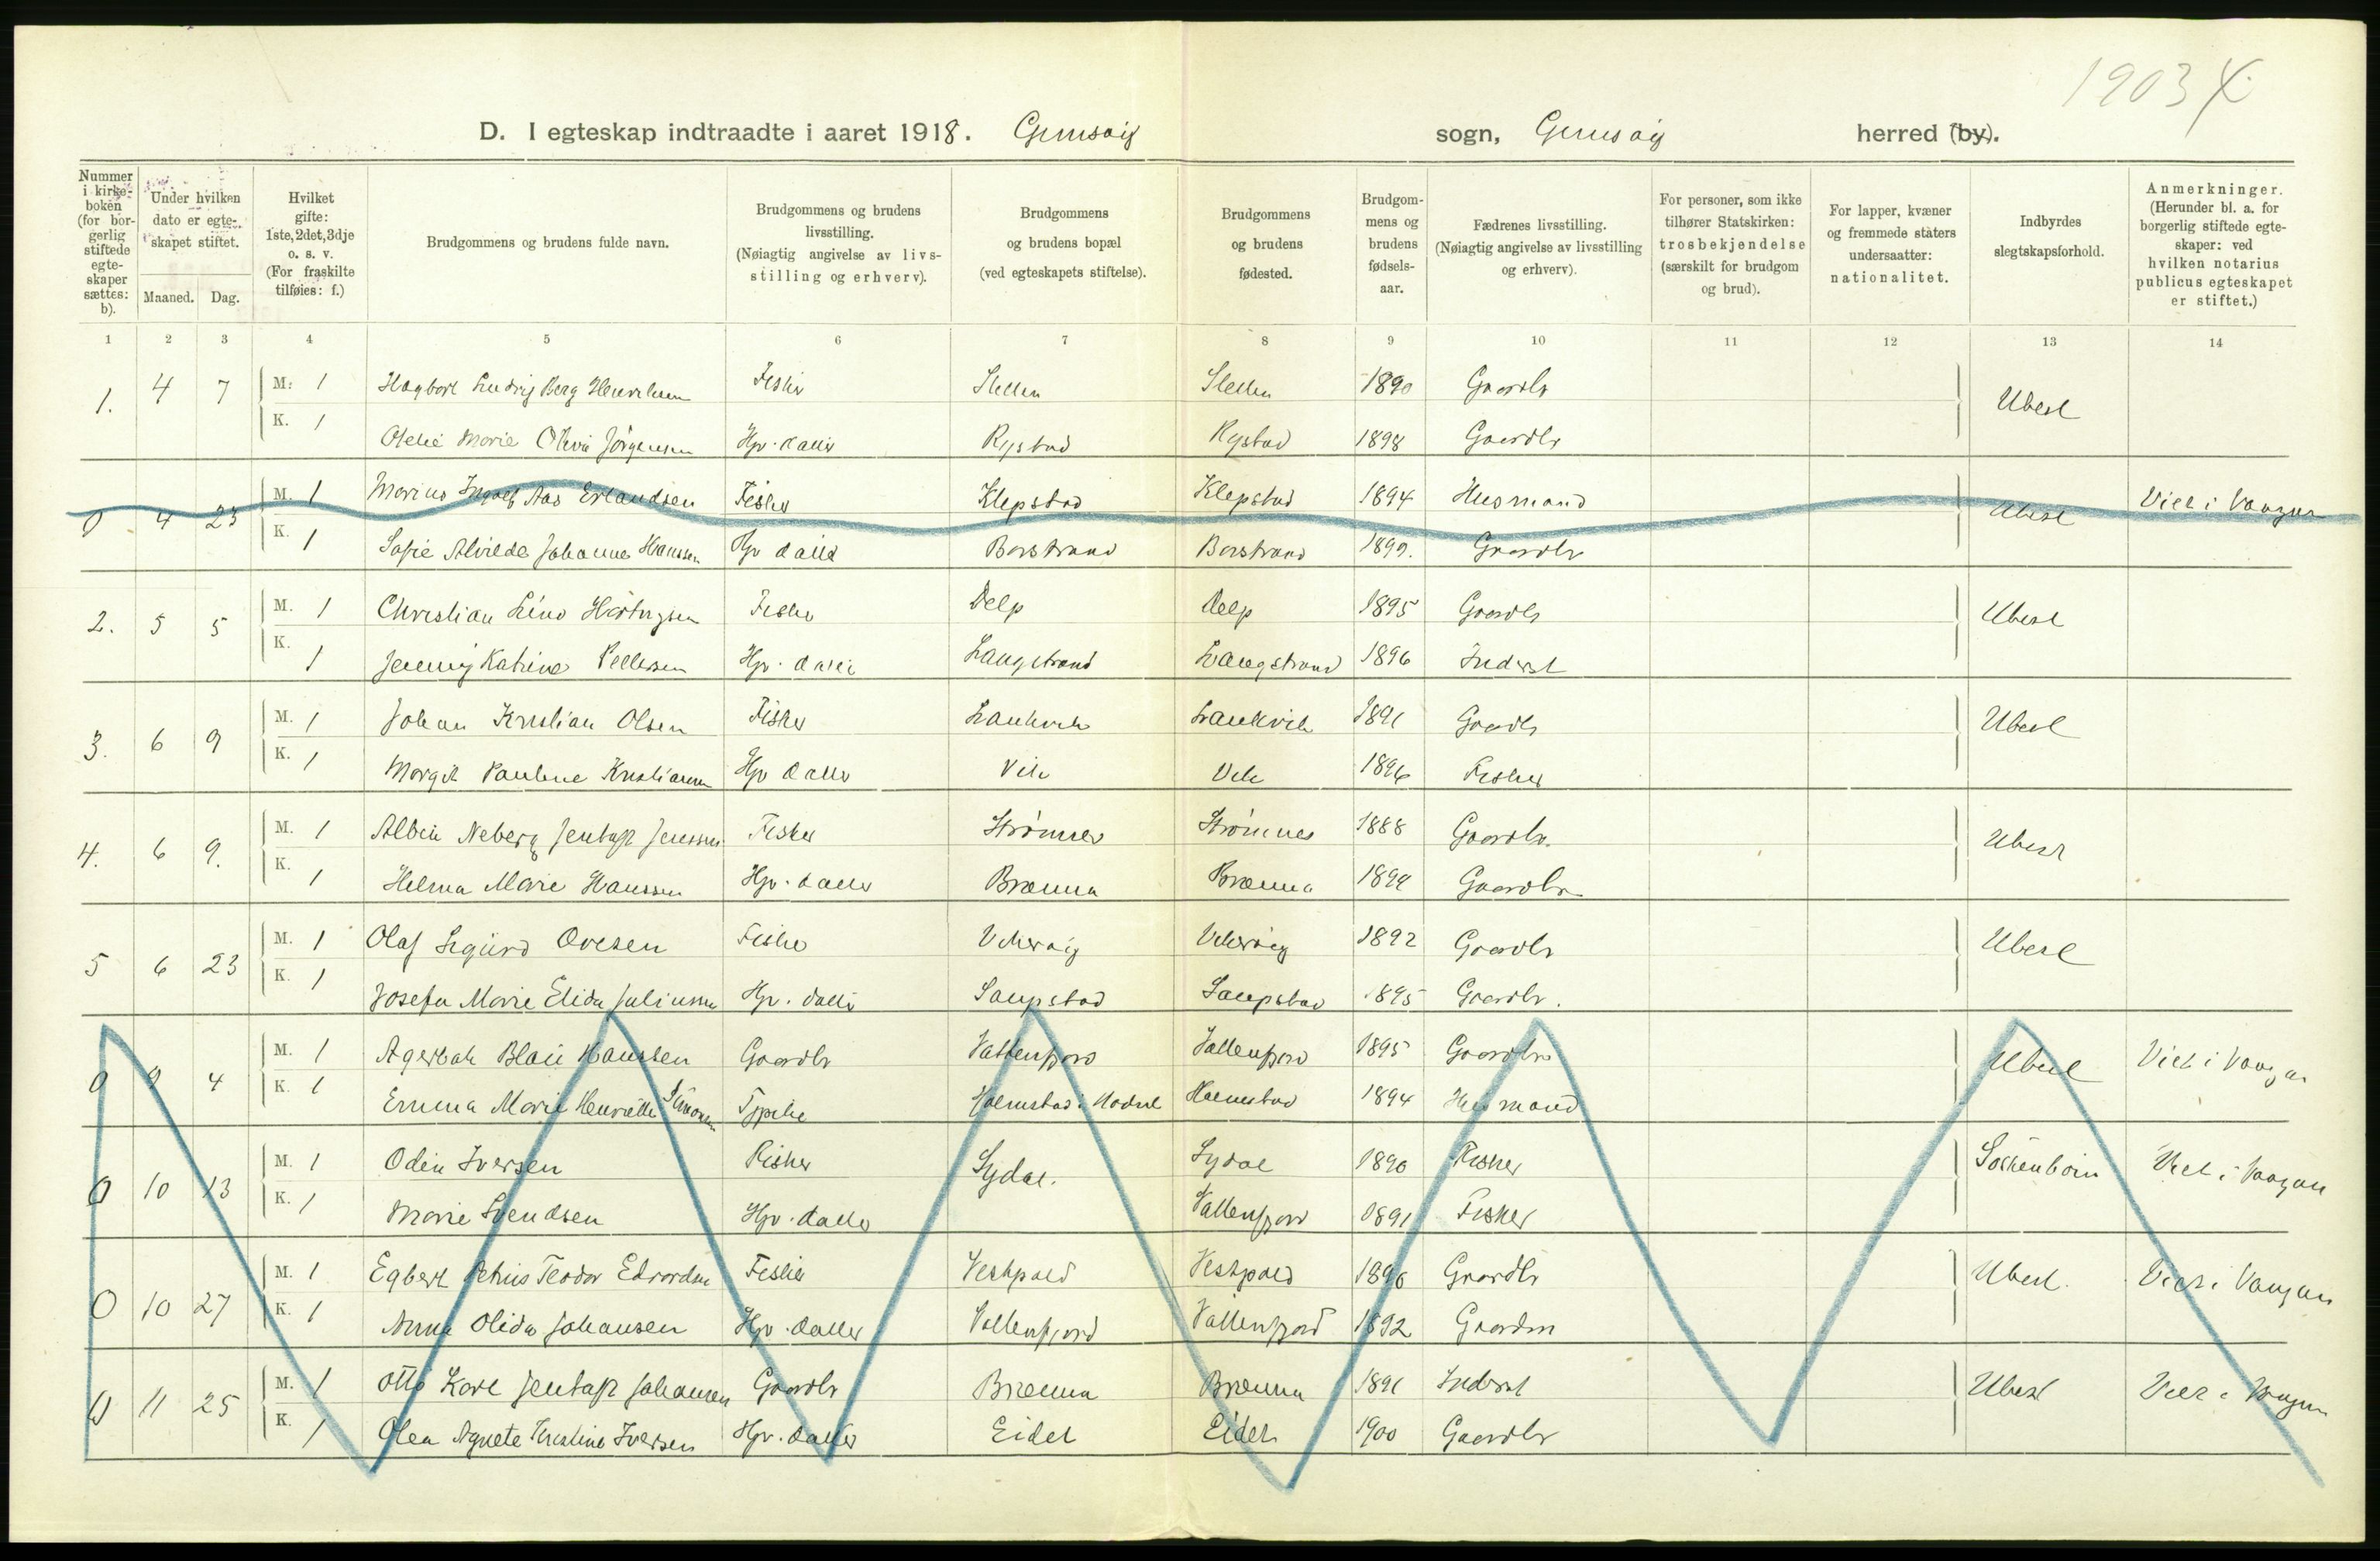 1903
D. I egteskap indtraadte i aaret 1918. Gimsøig sogn, Gimsøig herred (by).
Nummer i kirkeboken (for borgerlig stiftede egteskaper sættes: b).
Under hvilken dato er egteskapet stiftet.
Maaned. Dag.
Hvilket gifte: 1ste, 2det, 3dje o. s. v. (For fraskilte tilføies: f.)
Brudgommens og brudens fulde navn.
Brudgommens og brudens livsstilling. (Nøiagtig angivelse av livsstilling og erhverv).
Brudgommens og brudens bopæl (ved egteskapets stiftelse).
Brudgommens og brudens fødested.
Brudgommens og brudens fødselsaar.
Fædrenes livsstilling. (Nøiagtig angivelse av livsstilling og erhverv).
For personer, som ikke tilhører Statskirken: trosbekjendelse (særskilt for brudgom og brud).
For lapper, kvæner og fremmede staters undersaatter: nationalitet.
Indbyrdes slegtskapsforhold.
Anmerkninger. (Herunder bl. a. for borgerlig stiftede egteskaper: ved hvilken notarius publicus egteskapet er stiftet.)
1 2 3 4 5 6 7 8 9 10 11 12 13 14
1. 4 7 M. 1 Hagbart Ludvig Berg Henriksen Fisker Sletten Sletten 1890 Gaardbr Ubesl
K. 1 Marie Olivia Jörgensen Hjv. datter Rystad Rystad 1898 Gaardbr
0 4 23 M. 1 Marius Ingolf Aas Erlandsen Fisker Klepstad Klepstad 1894 Husmand Ubesl Viet i Vaagan
K. 1 Sofie Alvilde Johanne Hanssen Hjv datter Barstrand Barstrand 1899. Gaardbr
2. 5 5 M. 1 Christian Lind Fisker Delp Delp 1895 Gaardbr Ubesl
K. 1 Jenny Katrine Pettersen Hjv. datter Langstrand Langstrand 1896 Inderst
3. 6 9 M. 1 Johan Kristian Olsen Fisker Laukvik Laukvik 1891 Gaardbr Ubesl
K. 1 Margit Pauline Kristiansen Hjv datter Vik Vik 1896 Fisker
4. 6 9. M. 1 Albin Neberg Jentoft Jenssen Fisker Strømnes Strømnes 1888 Gaardbr. Ubesl
K. 1 Helma Marie Hanssen Hjv. datter Brænna Brænna 1894 Gaardbr
5 6 23 M. 1 Olaf Sigurd Ovesen Fisker Vikersøig Vikersøig 1892 Gaardbr Ubesl
K. 1 Josefa Marie Elida Juliussen Hjv. datter Saupstad Saupstad 1895 Gaardbr.
0 9 4 M. 1 Agerbak Blaü Hanssen Gaardbr Vattenfjord Vattenfjord 1895 Gaardbr Ubesl Viet i Vaagan
K. 1 Emma Marie Henriette Simonsen Holmstad i Hadsel Holmstad 1894 Husmand
0 10 13 M. 1 Odin Iversen Fisker Sydal. Sydal 1890 Fisker Söskenbörn Viet i Vaagan
K. 1 Marie Svendsen Hjv. datter Vattenfjord 1891 Fisker
0 10 27 M. 1 Egbert Petrus Teodor Edvardsen Fisker Vestpold Vestpold 1896 Gaardbr Ubesl. Viet i Vaagan
K. 1 Anna Olida Johansen Hjv. datter Vattenfjord Vattenfjord 1892 Gaardm
0 11 25 M. 1 Otto Karl Jentoft Johansen Gaardbr Brænna Brænna 1891 Inderst Ubesl Viet i Vaagan
K. 1 Olea Agnete Kristine Iversen Hjv. datter Eidet Eidet 1900 Gaardbr